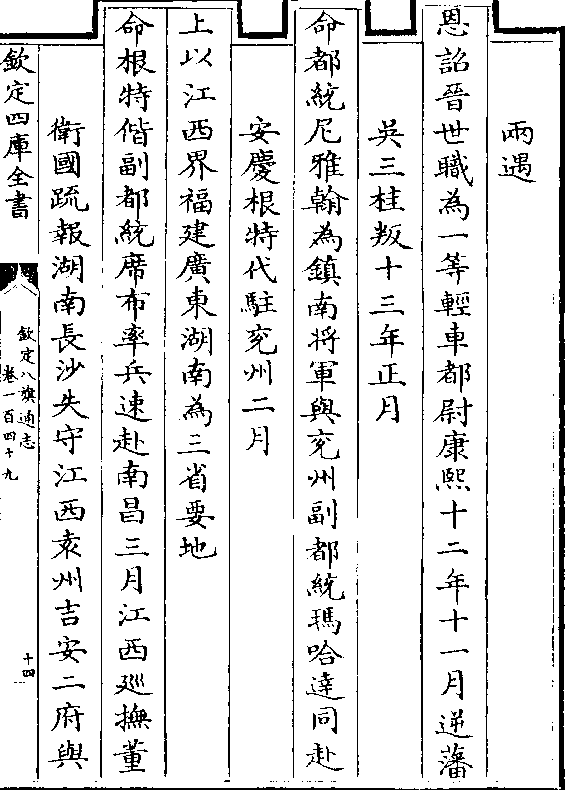 兩遇
恩詔晉世職為一等輕車都尉康熙十二年十一月逆藩
吳三桂叛十三年正月
命都統尼雅翰為鎮南將軍與兖州副都統瑪哈達同赴
安慶根特代駐兖州二月
上以江西界福建廣東湖南為三省要地
命根特偕副都統席布率兵速赴南昌三月江西廵撫董
衛國疏報湖南長沙失守江西袁州吉安二府與
欽定四庫全書
欽定八旗通志
卷一百四十九
十四